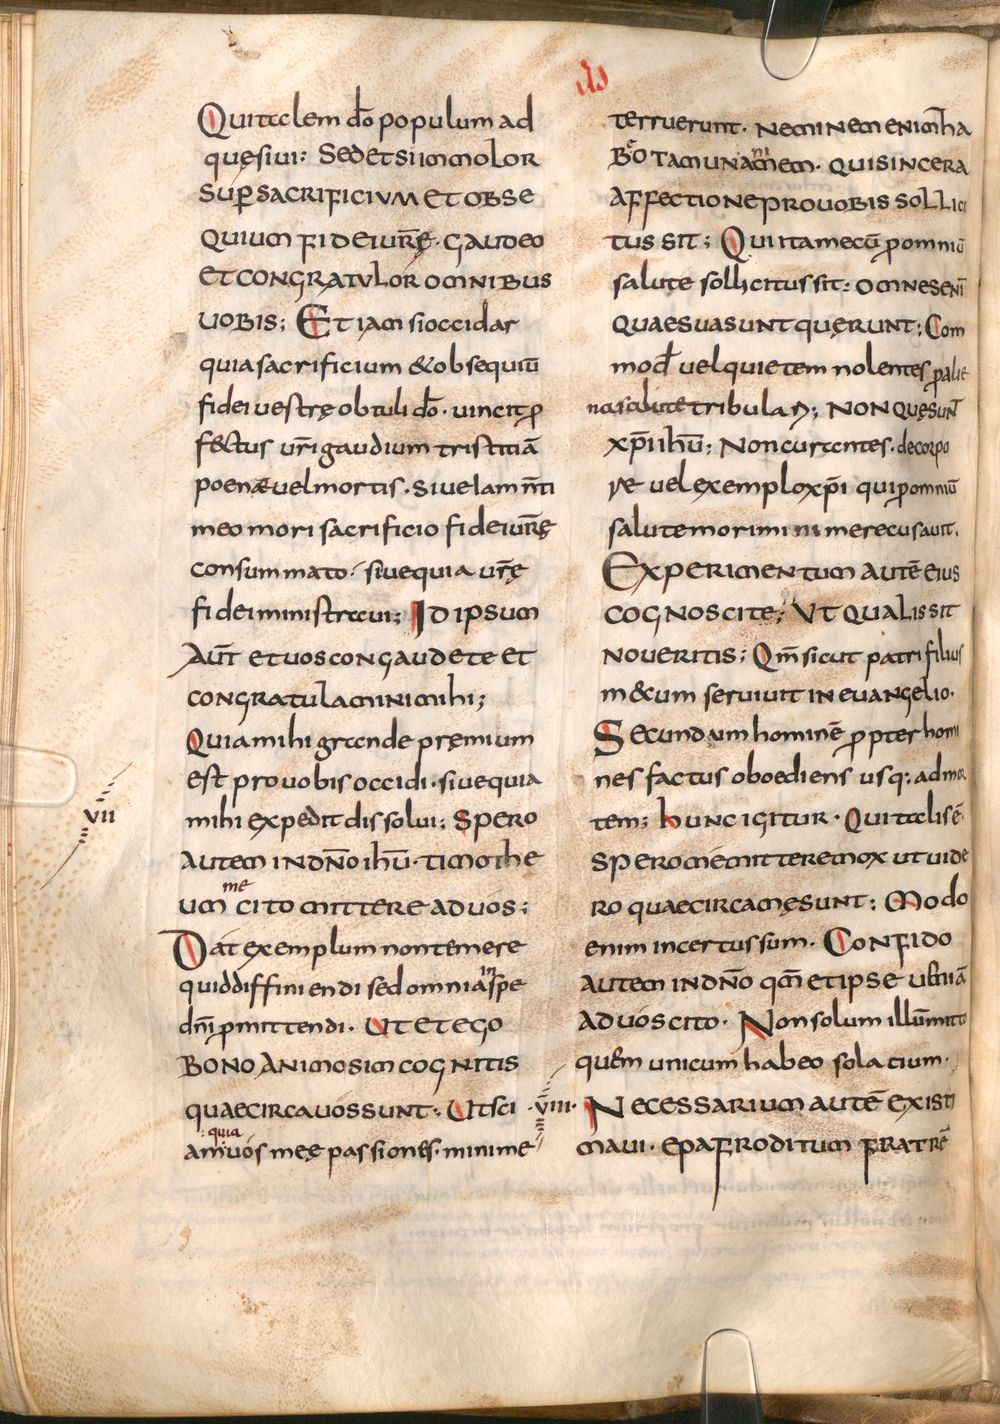 Qui talem dō populum ad
quęsiui: Sed et si immolor
sup̄ sacrificium et obse
quium fidei ur̄ę · gaudeo
et congratulor omnibus
uobis; Etiam si occidar
quia sacrificium & obsequiū
fidei uestrę obtuli dō · uincit p̄
fectus ur̄i gaudium tristitiā
poenæ uel mortis · Siue lamn̄ti
meo mori sacrificio fidei ur̄ę
consummato · siue quia ur̄ę
fidei ministraui; Id ipsum
aut̄ et uos congaudete et
congratulamini mihi;
Quia mihi grande pręmium
est pro uobis occidi · siue quia
mihi expedit dissolui; Spero
autem in dn̄o ihū · timothe
me
um cito mittere ad uos;
Dat exemplum non temere
in
quid diffiniendi sed omnia spe
dn̄i p̄mittendi · Ut et ego
bono animo sim cognitis
quae circa uos sunt; Ut sci
: quia
am: uos meę passiones · minime
VII
terruerunt · neminem enim ha
beo tam unanimem · qui sincera
affectione pro uobis sollici
tus sit; Qui ita mecū p̄ omniū
salute sollicitus sit: omnes enī
quae sua sunt quęrunt; Com
mod̄ uel quietem nolentes p̄ alie
na salute tribulari; non quę sunt
xp̄i ihū; Non curantes · de corpo
re uel exemplo xp̄i qui p̄ omniū
salute mori minime recusauit.
Experimentum autē eius
cognoscite; Ut qualis sit
noueritis; Qm̄ sicut patri filius
m&cum seruiuit in euangelio ·
Secundum hominē p̄pter homi
nes factus oboediens usq; ad mor
tem; hunc igitur · Qui talis ē
spero me mittere mox ut uide
ro quae circa me sunt; Modo
enim incertus sum · Confido
autem in dn̄o qm̄ et ipse ueniā
ad uos cito · Non solum illū mitto
quem unicum habeo solatium ·
· VIII · Necessarium autē existi
maui · epafroditum fratrē